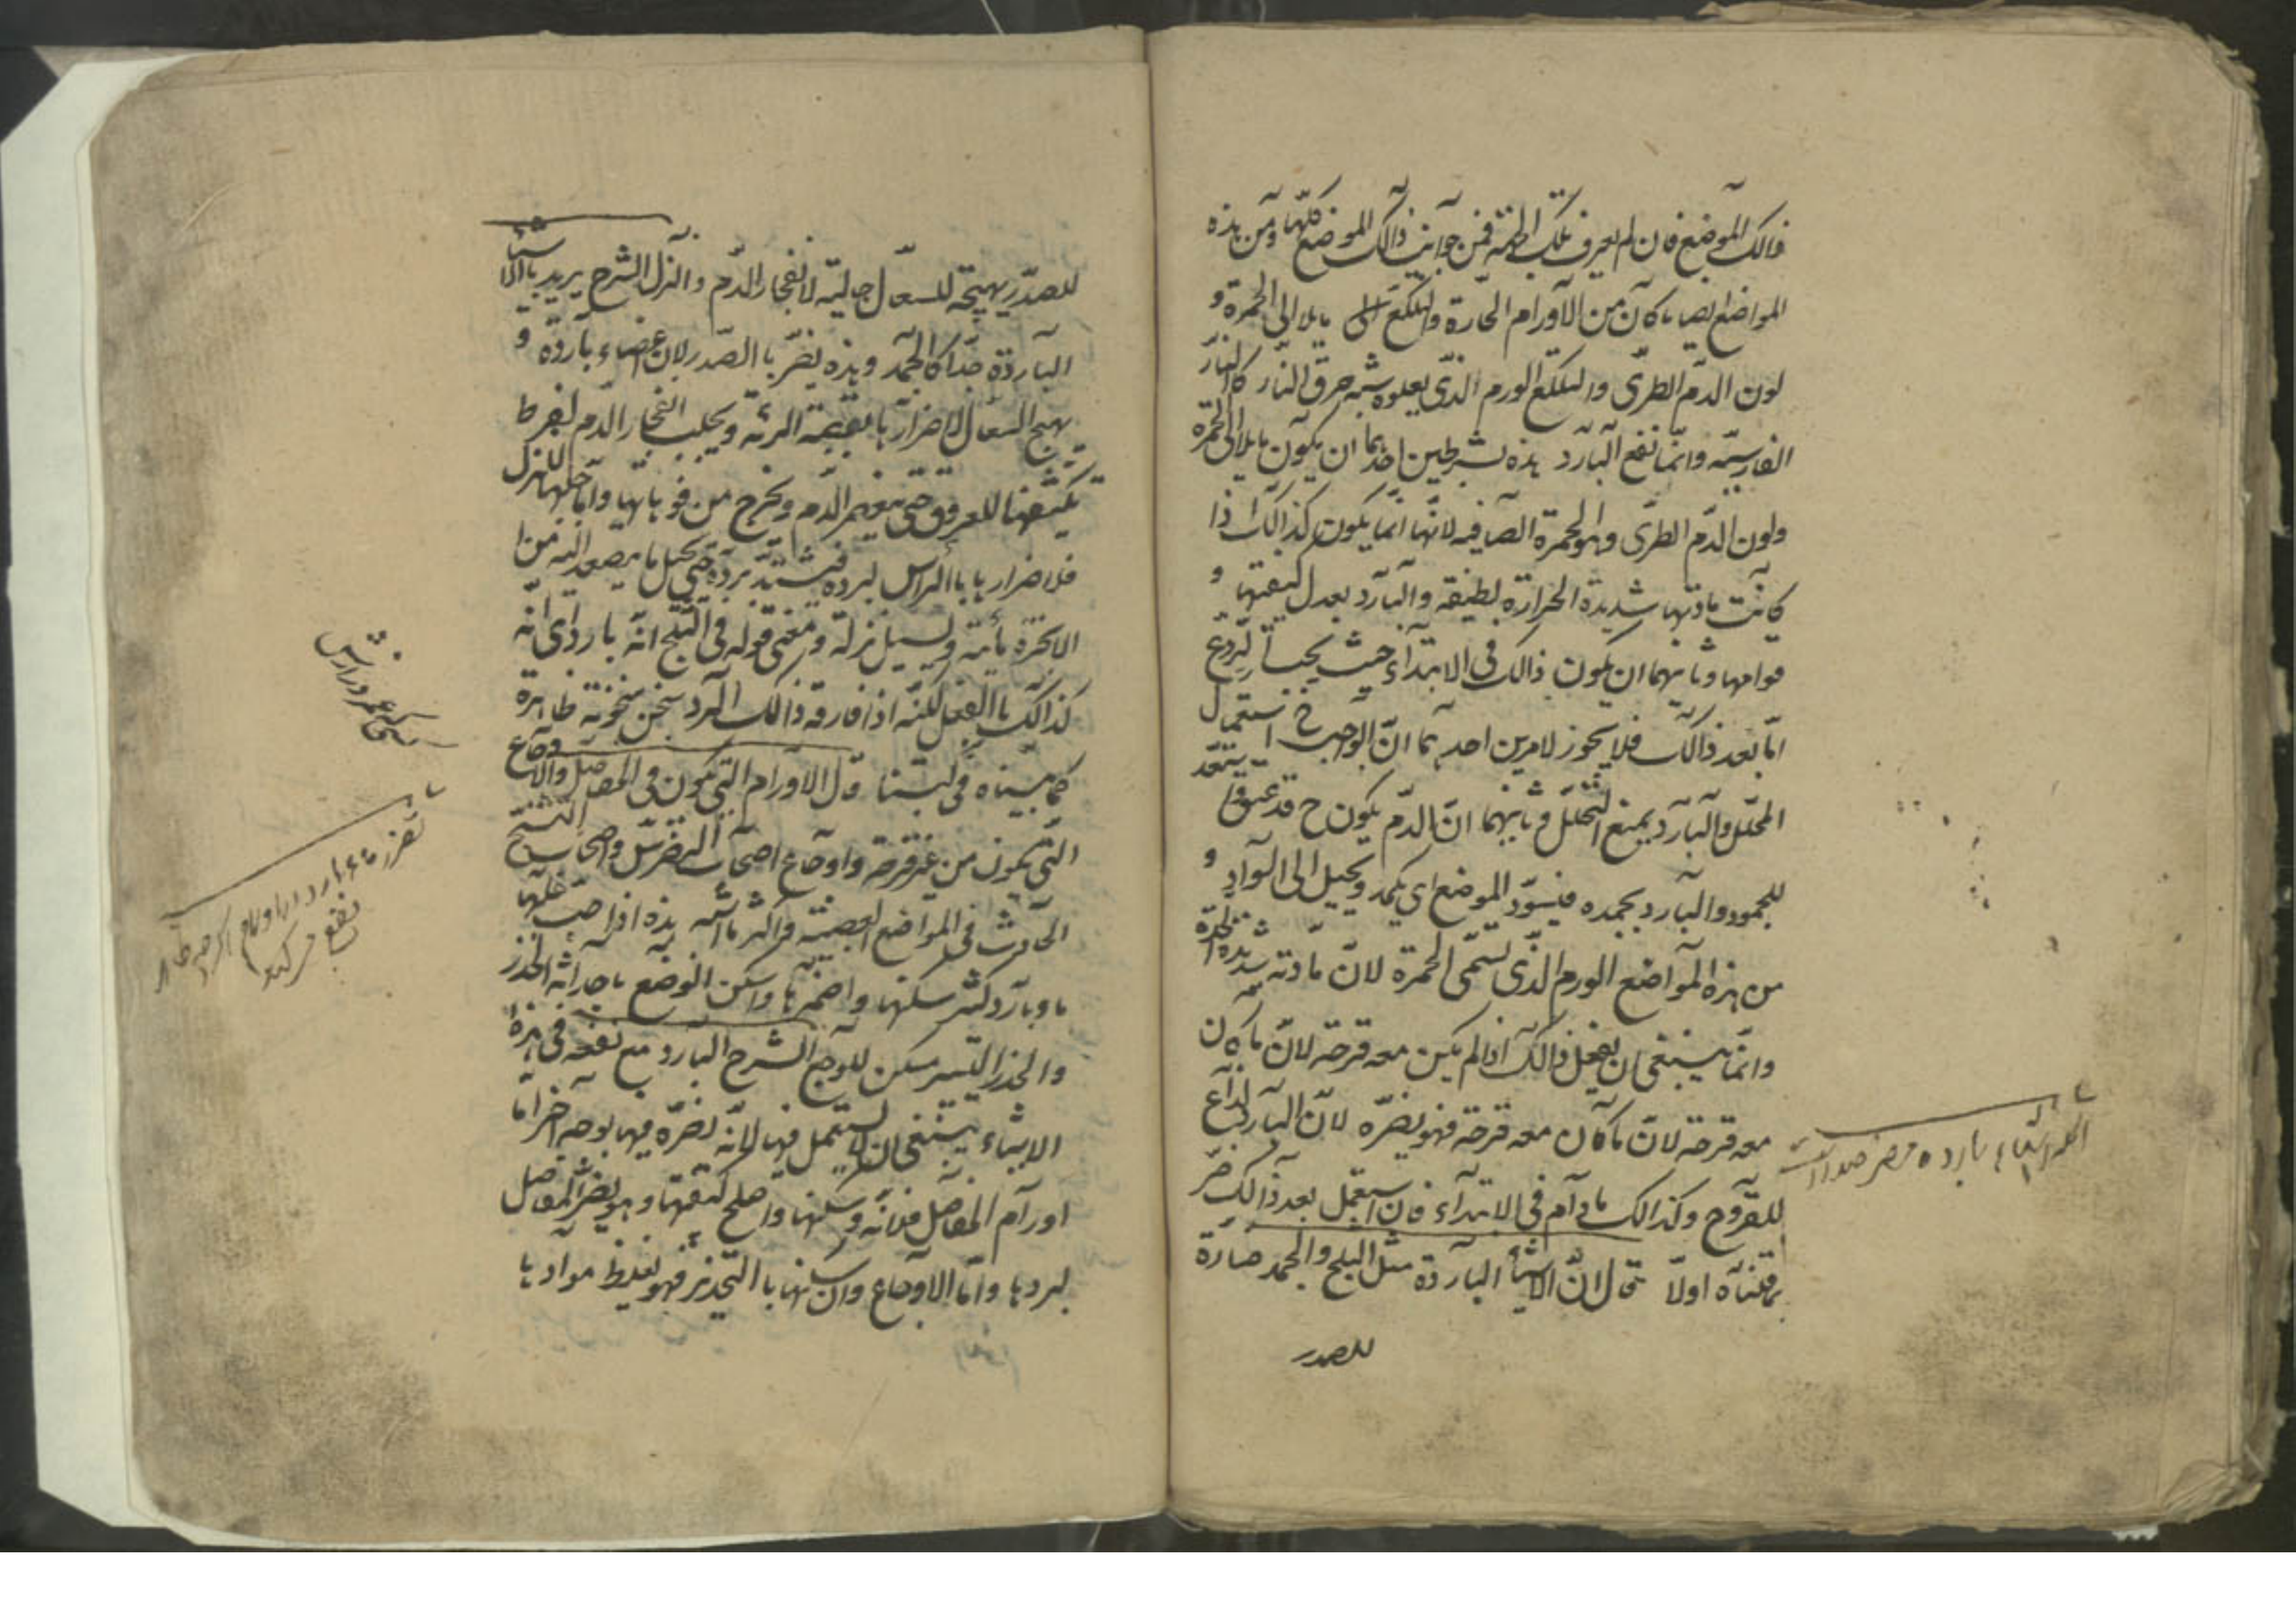 ذالك الموضع فان لم يعرف تلك الجهة فمن جوانب ذالك الموضع كلها ومن هذه
المواضع ايضا ما كان من الاورام الحارة والتلكع مايلا الى الحمرة و
لون الدم الطرى والتلكع الورم الذى يعلوه شبه حرق النار كالنار
الفارسية وانما نفع البارد هذه بشرطين احدهما ان يكون مايلا الى الحمرة
ولون الدم الطرى وهو الحمرة الصافيه لانها انما يكون كذالك اذا
كانت مادتها شديدة الحرارة لطيفة والبارد يعدل كيفيتها و
قوامها وثانيهما ان يكون ذالك فى الابتداء حيث يحتاج لردع
اما بعد ذالك فلا يجوز لامرين احدهما ان الواجب ح استعمال
المحلل والبارد يمنع التحلل وثانيهما ان الدم يكون ح قد يستعد
للجمود والبارد يجمده فيسود الموضع اى يكمد ويحيل الى السواد و
من هذه المواضع الورم الذى تسمى الحمرة لان مادته شديدة الحدة
وانما ينبغى ان يفعل ذالك اذا لم يكن معه قرحة لان ما كان
معه قرحة لان ما كان معه قرحة فهو يضره لان البارد لذاع
للقروح وكذالك مادام فى الابتداء فان استعمل بعد ذالك ضر
لما قلناه اولا قال ان الاشياء البارده مثل الثلج والجمد ضارة
للصدر
للصدر مهيجة للسعال جالية لانفجار الدم والنزل الشرح يريد بالاشياء
الباردة جدا كالجمد وهذه يضر باالصدر لان عضاءه باردة و
يهيج السعال لاضرار بالقصبة الرئة ويجلب انفجار الدم لفرط
تكثيفها للعروق حتى ينعصر الدم ويخرج من فوهاتها واما جلبها للنزل
فلاضرارها باالراس لبرده فيشتد برده حتى يحيل ما يصعد اليه من
الابخرة مائية ويسيل نزلة ومعنى قوله فى الثلج انه بارد اى انه
كذالك باالفعل لكنه اذا فارقه ذالك البرد سخن سخونة ظاهرة
كما بيناه فى كتبنا قال الاورام التى تكون فى المفاصل والاوجاع
التى تكون من غير قرحة واوجاع اصحاب النقرس واصحاب التشنج
الحادث فى المواضع العصبية واكثر ما اشبه هذه اذا صب عليها
ماء بارد كثير سكنها واضمرها واسكن الوجع باحداثه الخدر
والخدر اليسير مسكن للوجع الشرح البارد مع نفعه فى هذه
الاشياء ينبغى ان لا يستعمل فيها لانه يضره فيها بوجه اخر اما
اورام المفاصل فلانه وسكنها واصلح كيفيتها وهو يضر المفاصل
لبردها واما الاوجاع وان سكنها باالتخدير فهو يغلظ موادها